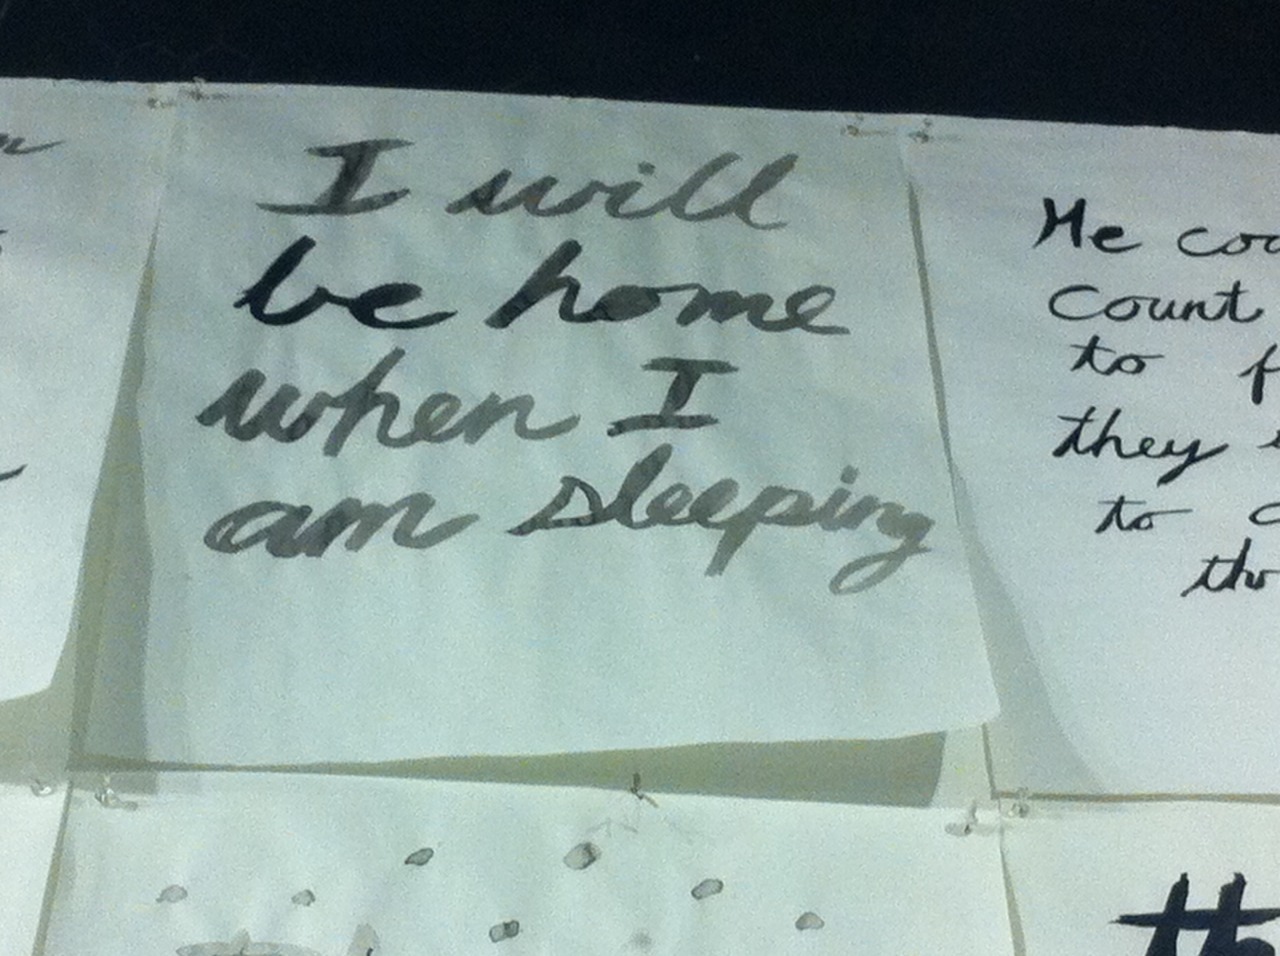 I will
be home
when I
am sleeping
He
count
to
they
to